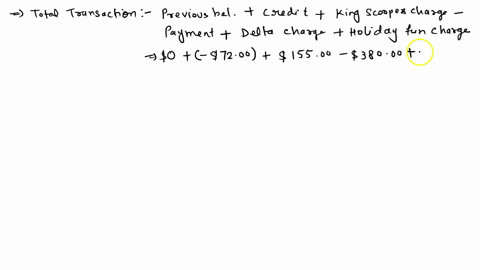 ⇒ Total Transaction:- Previous bal. + Credit + King Scooper charge -
Payment + Delta charge + Holiday fun charge
⇒ $0 + (-$72.00) + $155.00 - $380.00 +